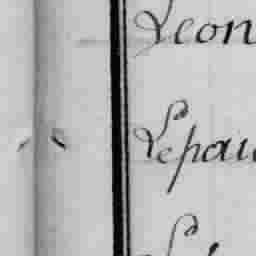 Leon
Lepau